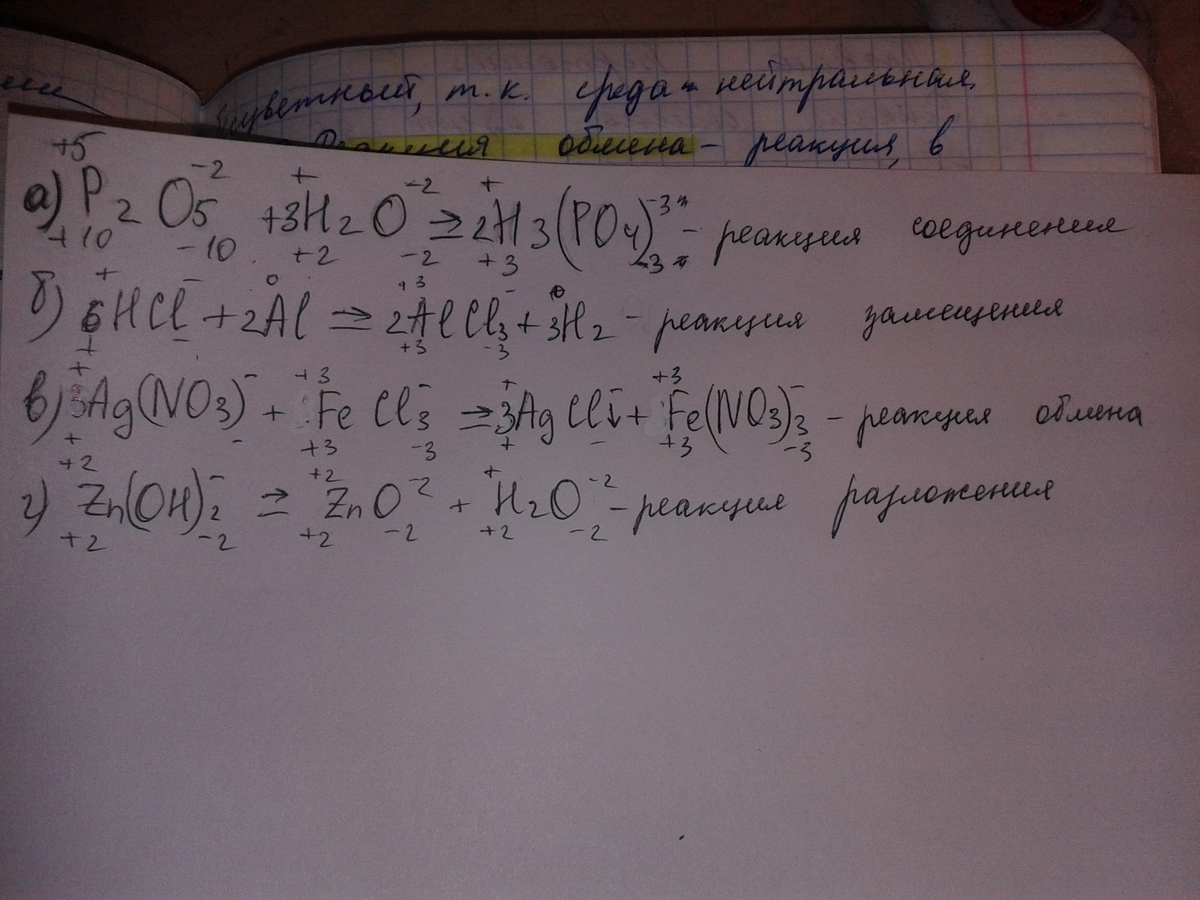 безцветный, т.к. среда - нейтральная.
Реакция обмена - реакция, в
+5 -2 + -2 + -3
а) P2O5 + 3H2O ⇒ 2H3(PO4) - реакция соединения
+10 -10 +2 -2 +3 -3
+ - 0 +3 - 0
б) 6HCl + 2Al ⇒ 2AlCl3 + 3H2 - реакция замещения
+ - +3 -3
+ - +3 - + - +3 -
в) 3Ag(NO3) + FeCl3 ⇒ 3AgCl↓ + Fe(NO3)3 - реакция обмена
+ - +3 -3 + - +3 -3
+2 - +2 -2 + -2
г) Zn(OH)2 ⇒ ZnO + H2O - реакция разложения
+2 -2 +2 -2 +2 -2